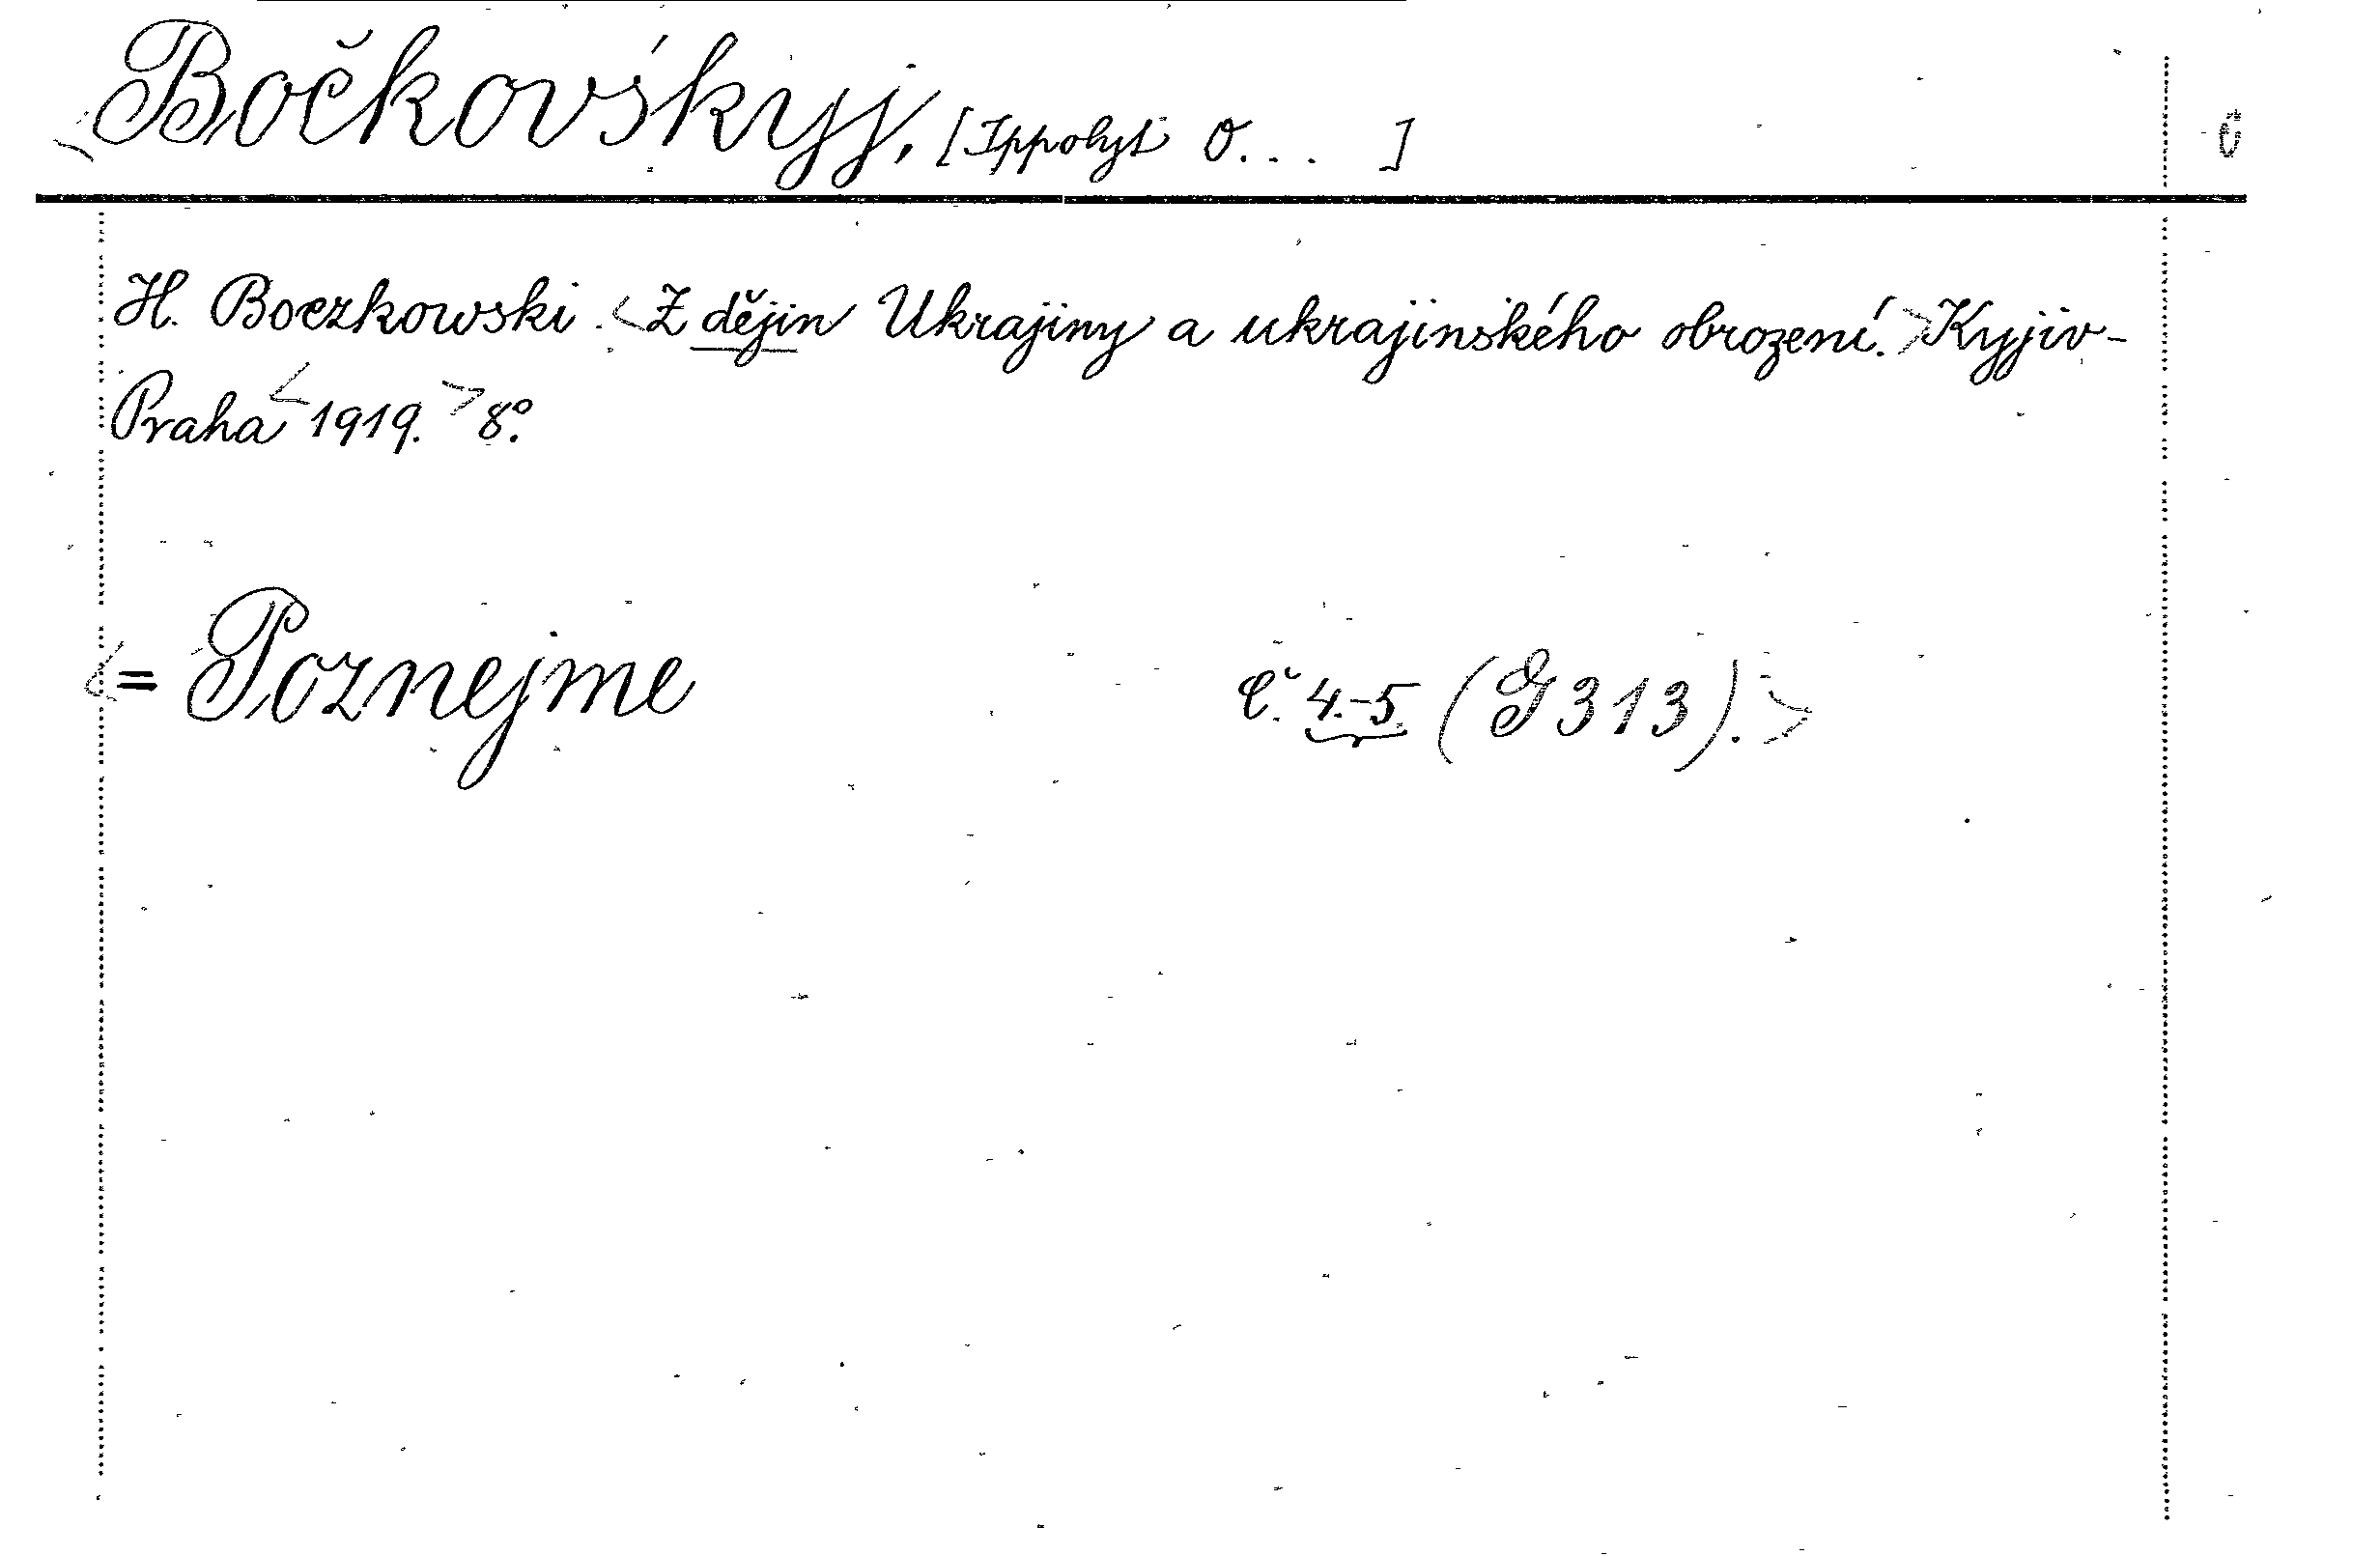 Bočkovśkyj, [Ippolyt O... ]
H. Boczkowski. <Z dějin Ukrajiny a ukrajinského obrození.> Kyjiv-
Praha <1919.> 8°.
<= Poznejme č. 4.-5. (G 313).>